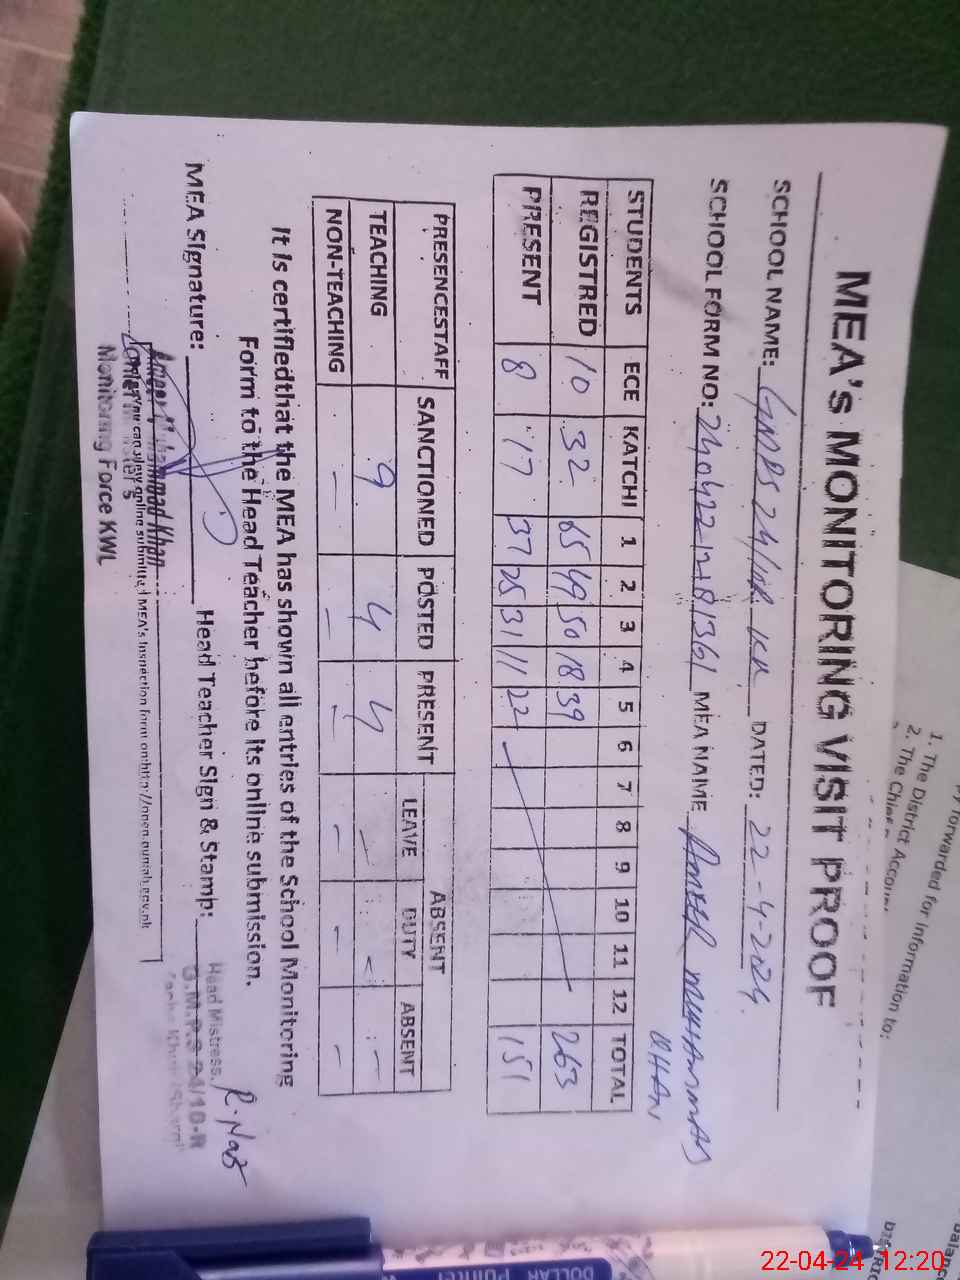 MEA's MONITORING VISIT PROOF
SCHOOL NAME: GMPS 24/10R KK DATED: 22-4-2024.
SCHOOL FORM NO: MEA NAME AMEER MUHAMMAD KHAN
STUDENTS ECE KATCHI 1 2 3 4 5 6 7 8 9 10 11 12 TOTAL
REGISTRED 10 32 65 49 50 18 39 263
PRESENT 8 17 37 25 31 11 22 151
PRESENCESTAFF SANCTIONED POSTED PRESENT ABSENT
LEAVE DUTY ABSENT
TEACHING 9 4 4 - - -
NON-TEACHING - - - - - -
It is certifiedthat the MEA has shown all entries of the School Monitoring
Form to the Head Teacher before its online submission.
MEA Signature: Head Teacher Sign & Stamp: R.Naz
Ameer Muhammad Khan
Monitoring Force KWL
Head Mistress.
G.M.P.S 24/10-R
you can view online submitted MEA's Inspection form on
1. The District Accoun
2. The Chief
py forwarded for information to:
balance
DOLLAR Pointer
22-04-24 12:20